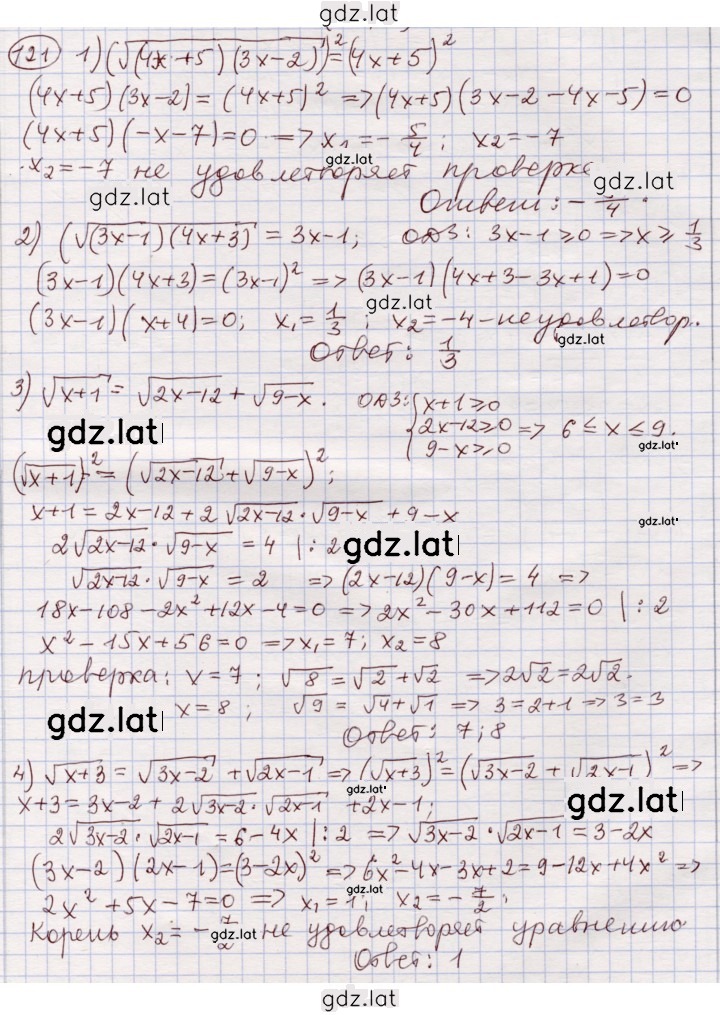 gdz.lat
121 1) (√(4x+5)(3x-2))² = (4x+5)²
(4x+5)(3x-2) = (4x+5)² => (4x+5)(3x-2-4x-5)=0
(4x+5)(-x-7)=0 => x₁=-5/4; x₂=-7
x₂=-7 не удовлетворяет проверке
gdz.lat gdz.lat
Ответ: - /4.
2) (√(3x-1)(4x+3) = 3x-1; ОДЗ: 3x-1≥0 => x≥1/3
(3x-1)(4x+3)=(3x-1)² => (3x-1)(4x+3-3x+1)=0
gdz.lat
(3x-1)(x+4)=0; x₁=1/3; x₂=-4-не удовлетвор.
gdz.lat
Ответ: 1/3
3) √x+1 = √2x-12 + √9-x. ОДЗ: {x+1≥0
{2x-12≥0 => 6≤x≤9.
{9-x≥0
gdz.lat gdz.lat
(√x+1)² = (√2x-12 + √9-x)²;
x+1 = 2x-12+2√2x-12·√9-x + 9-x
gdz.lat
2√2x-12·√9-x = 4 |:2
gdz.lat
√2x-12·√9-x = 2 => (2x-12)(9-x)=4 =>
18x-108-2x²+12x-4=0 => 2x²-30x+112=0 |:2
x²-15x+56=0 => x₁=7; x₂=8
проверка: x=7; √8=√2+√2 => 2√2=2√2.
x=8; √9=√4+√1 => 3=2+1 => 3=3
gdz.lat
Ответ: 7;8
4) √x+3 = √3x-2 + √2x-1 => (√x+3)² = (√3x-2 + √2x-1)² =>
x+3=3x-2+2√3x-2·√2x-1 +2x-1;
gdz.lat gdz.lat
2√3x-2·√2x-1 = 6-4x |:2 => √3x-2·√2x-1 = 3-2x
(3x-2)(2x-1)=(3-2x)² => 6x²-4x-3x+2=9-12x+4x² =>
gdz.lat
2x²+5x-7=0 => x₁=1; x₂=-7/2;
Корень x₂=-7/2 не удовлетворяет уравнению
gdz.lat gdz.lat
Ответ: 1
gdz.lat